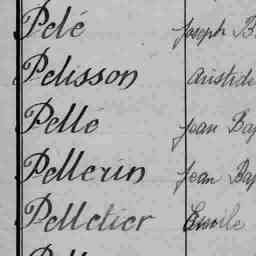 Pelé Joseph B
Pelisson Aristide
Pellé Jean Bap
Pellerin Jean Bap
Pelletier Emile